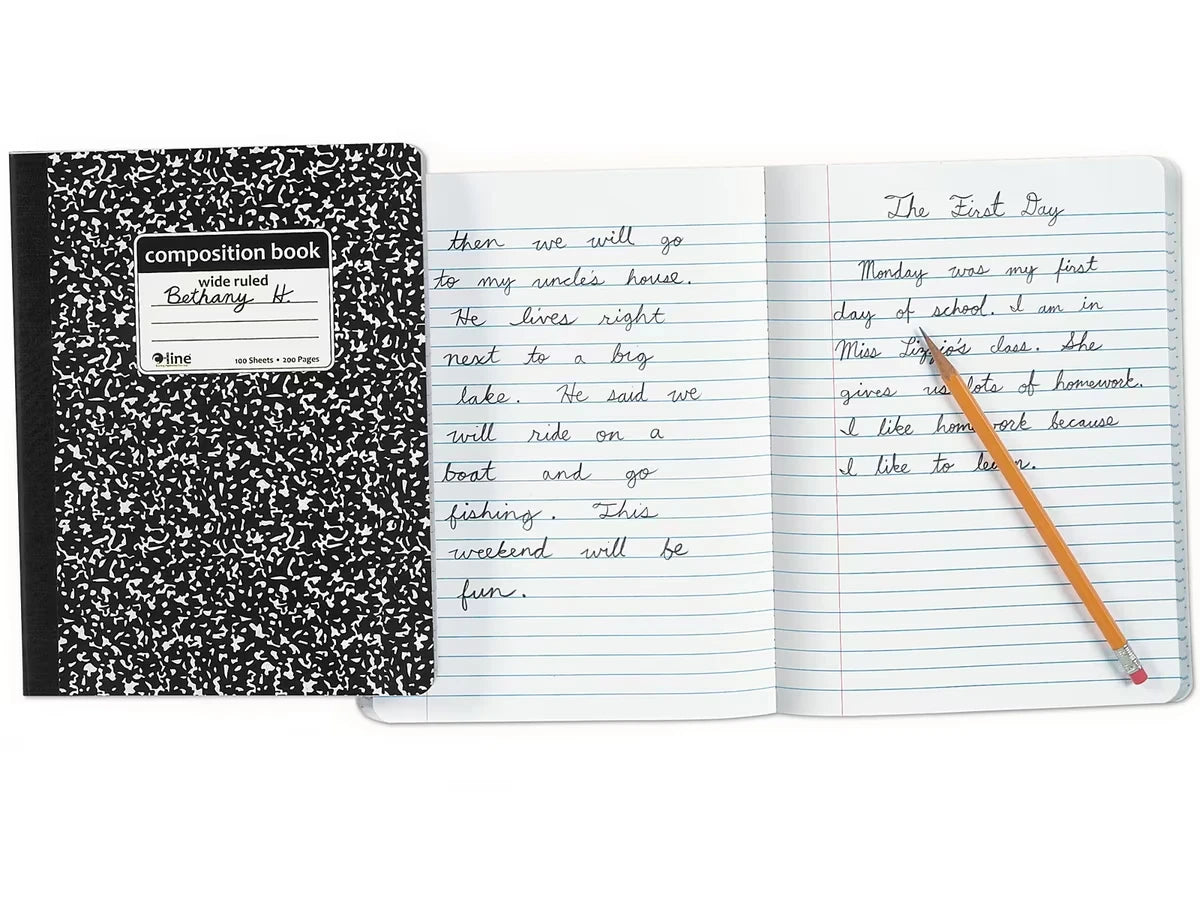 composition book
wide ruled
Bethany H.
C-line
100 Sheets • 200 Pages
then we will go
to my uncle's house.
He lives right
next to a big
lake. He said we
will ride on a
boat and go
fishing. This
weekend will be
fun.
The First Day
Monday was my first
day of school. I am in
Miss Lizzio's class. She
gives us lots of homework.
I like homework because
I like to learn.